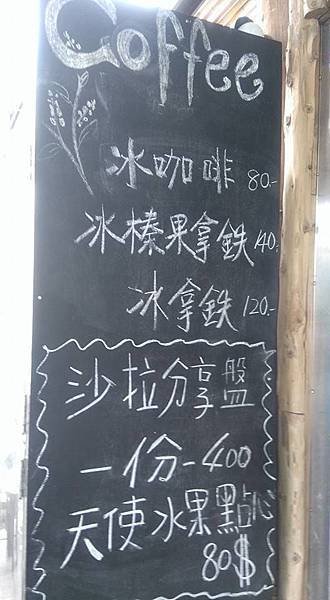 Coffee
冰咖啡 80.-
冰榛果拿鉄 140.-
冰拿鉄 120.-
沙拉分享盤
一份-400
天使水果點心
80$